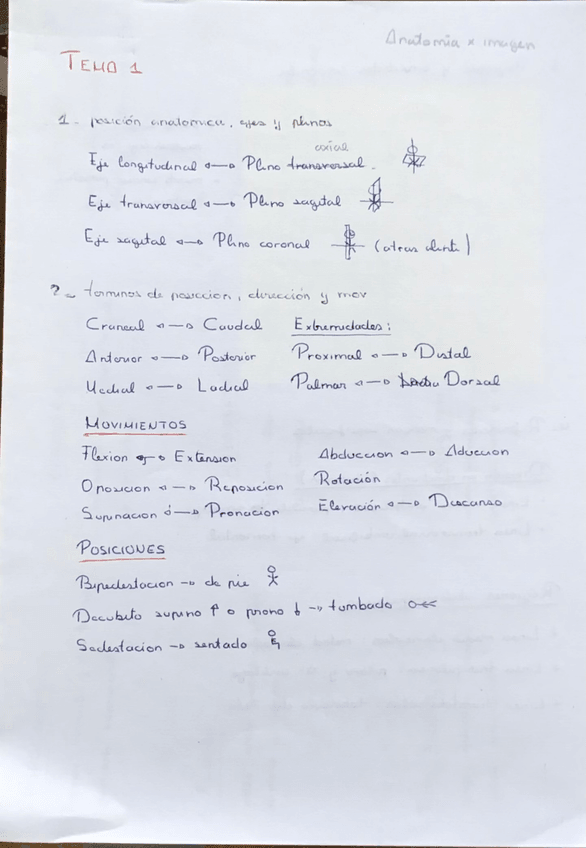 Anatomia x imagen
TEMA 1
1 - posición anatomica, ejes y planos
axial
Eje longitudinal ↔ Plano transversal.
Eje transversal ↔ Plano sagital
Eje sagital ↔ Plano coronal (atras)
2 - terminos de posicion, dirección y mov
Craneal ↔ Caudal Extremidades:
Anterior ↔ Posterior Proximal ↔ Distal
Medial ↔ Palmar ↔ Dorsal
MOVIMIENTOS
Flexion ↔ Extension Abduccion ↔ Aduccion
Oposicion ↔ Reposicion Rotación
Supinacion ↔ Pronacion Elevación ↔ Descenso
POSICIONES
Bipedestacion → de pie
Decubito supino ↑ o prono ↓ → tumbado
Sedestacion → sentado